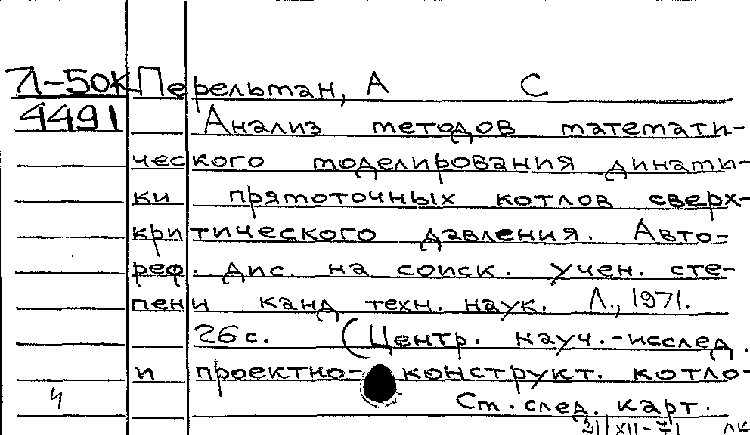 71-50К Перельман, А С
4491 Анализ методов математи-
ческого моделирования динами-
ки прямоточных котлов сверх-
критического давления. Авто-
реф. дис. на соиск. учен. сте-
пени канд техн. наук. Л., 1971.
26 с. (Центр. науч.-исслед.
и проектно-конструкт. котло-
ч Ст. след. карт.